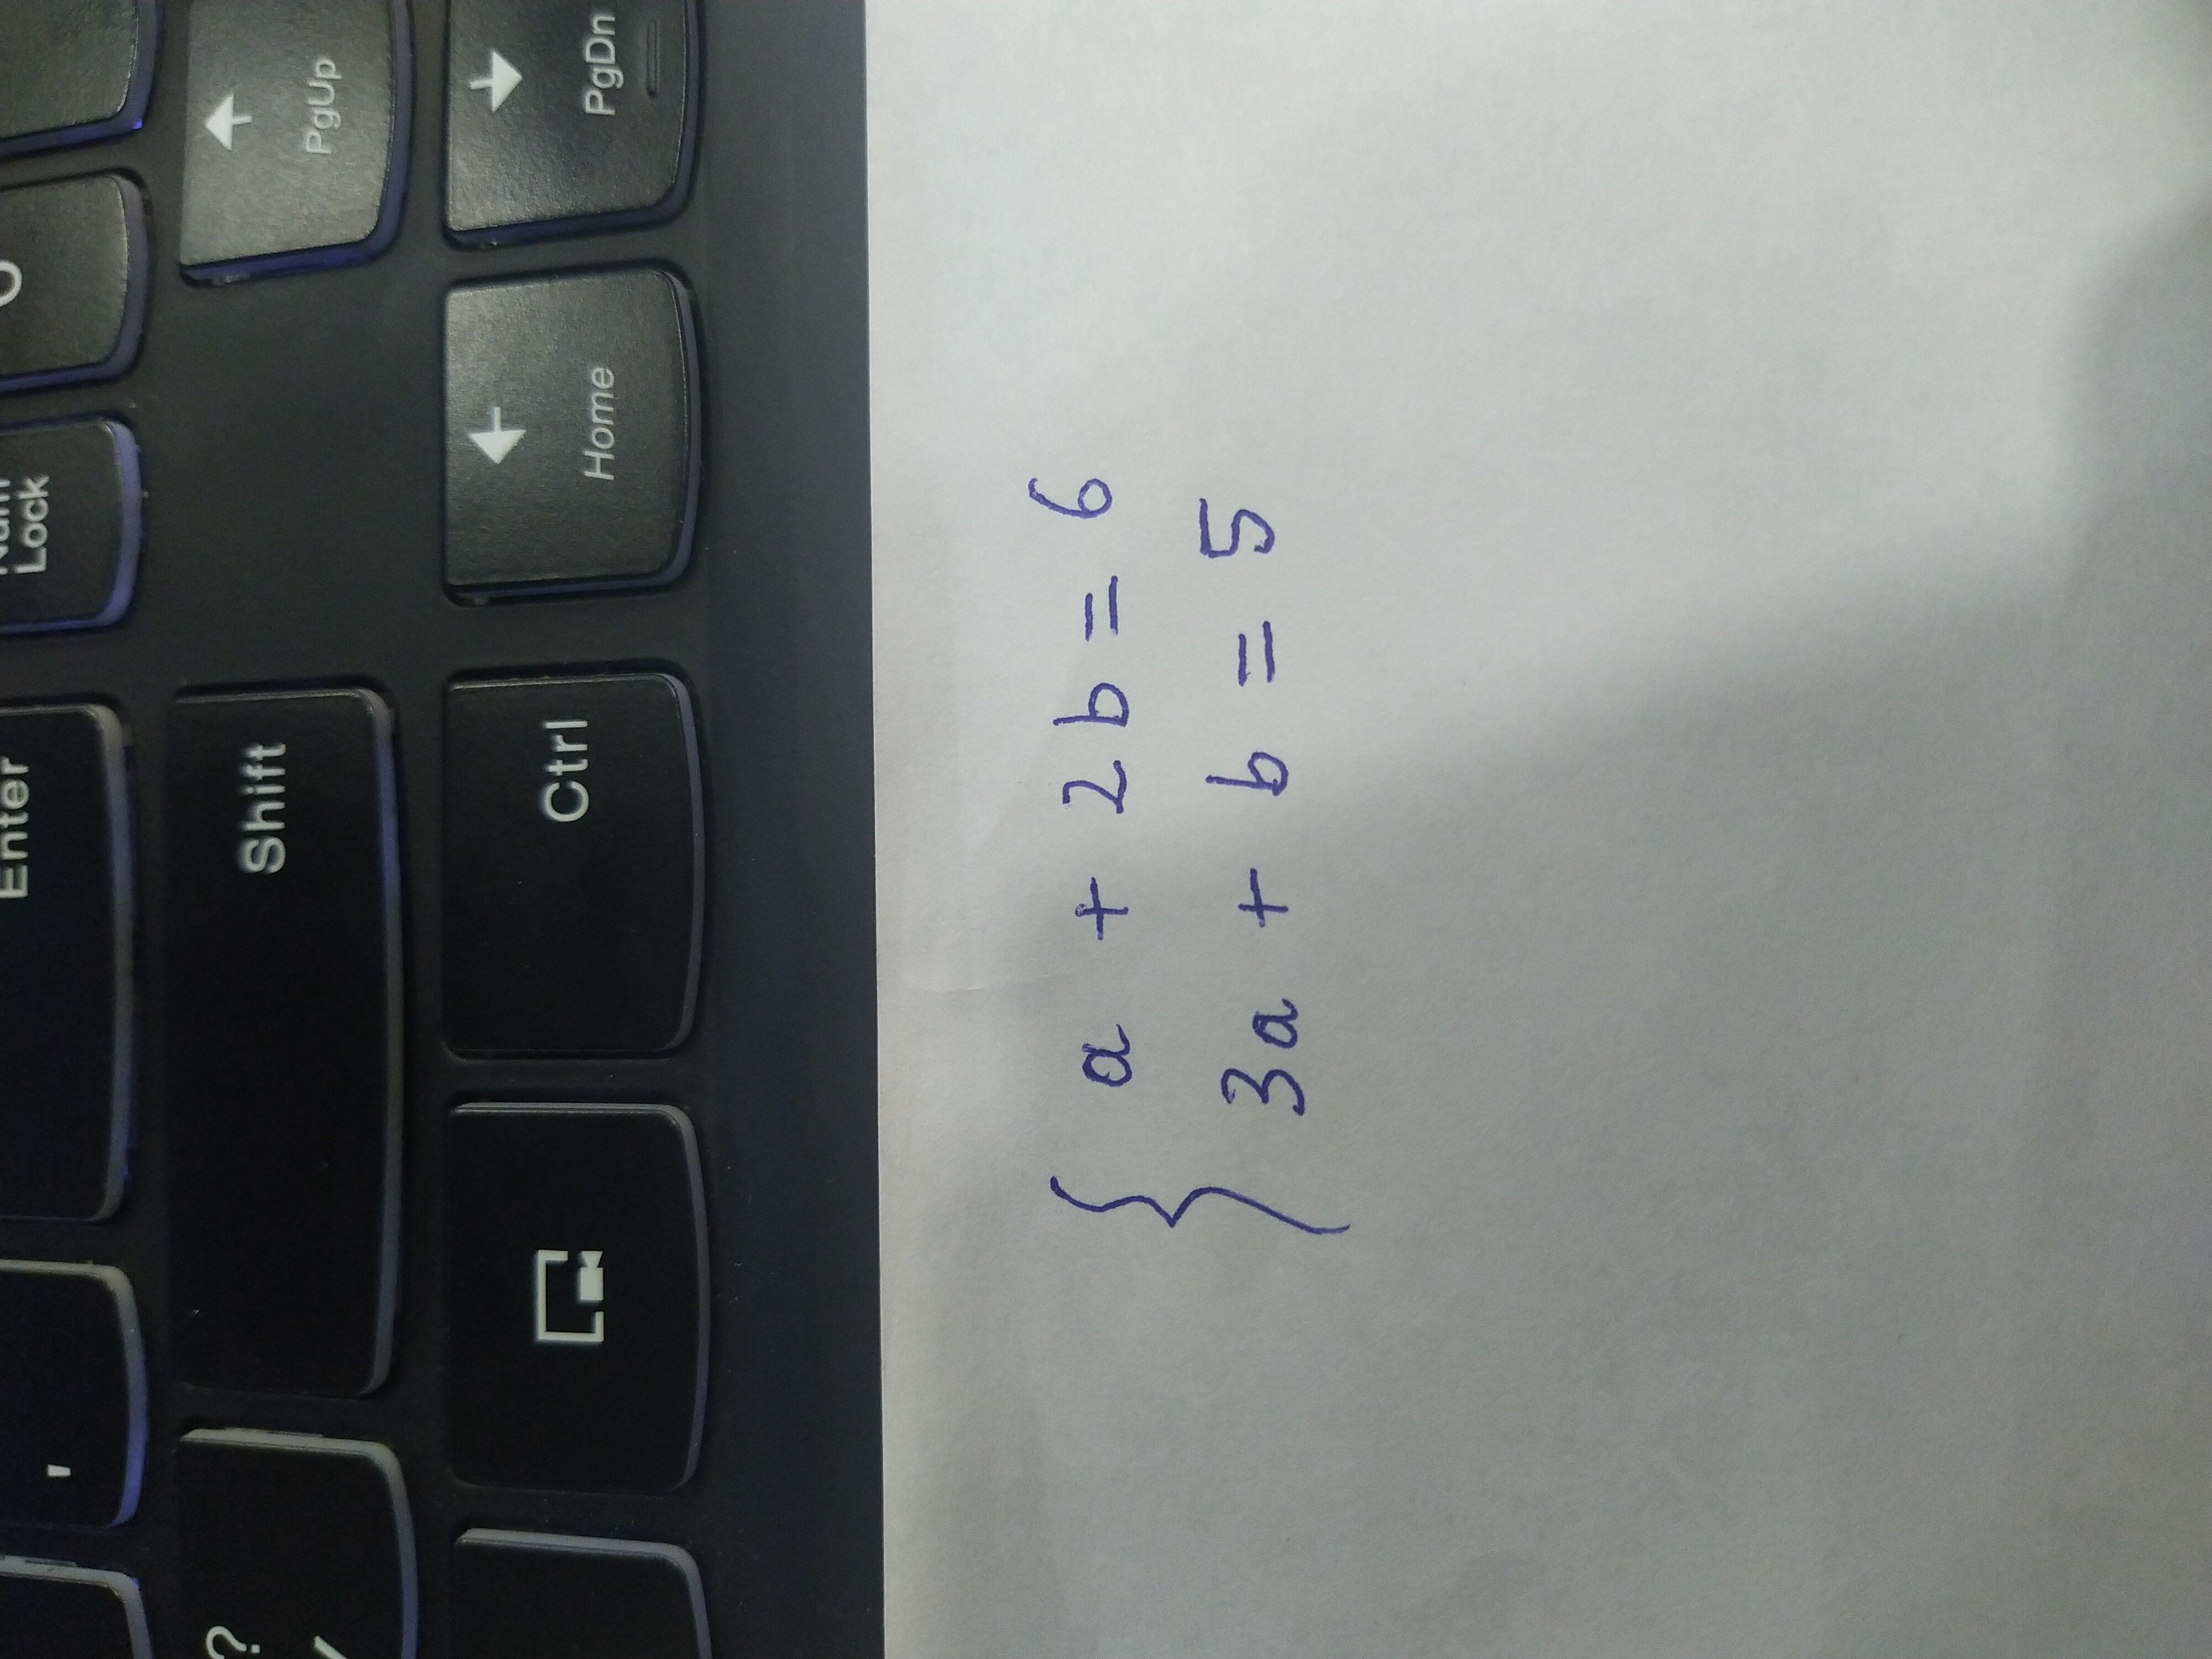 ' Enter Num Lock
? Shift PgUp
Ctrl Home PgDn
a + 2b = 6
3a + b = 5